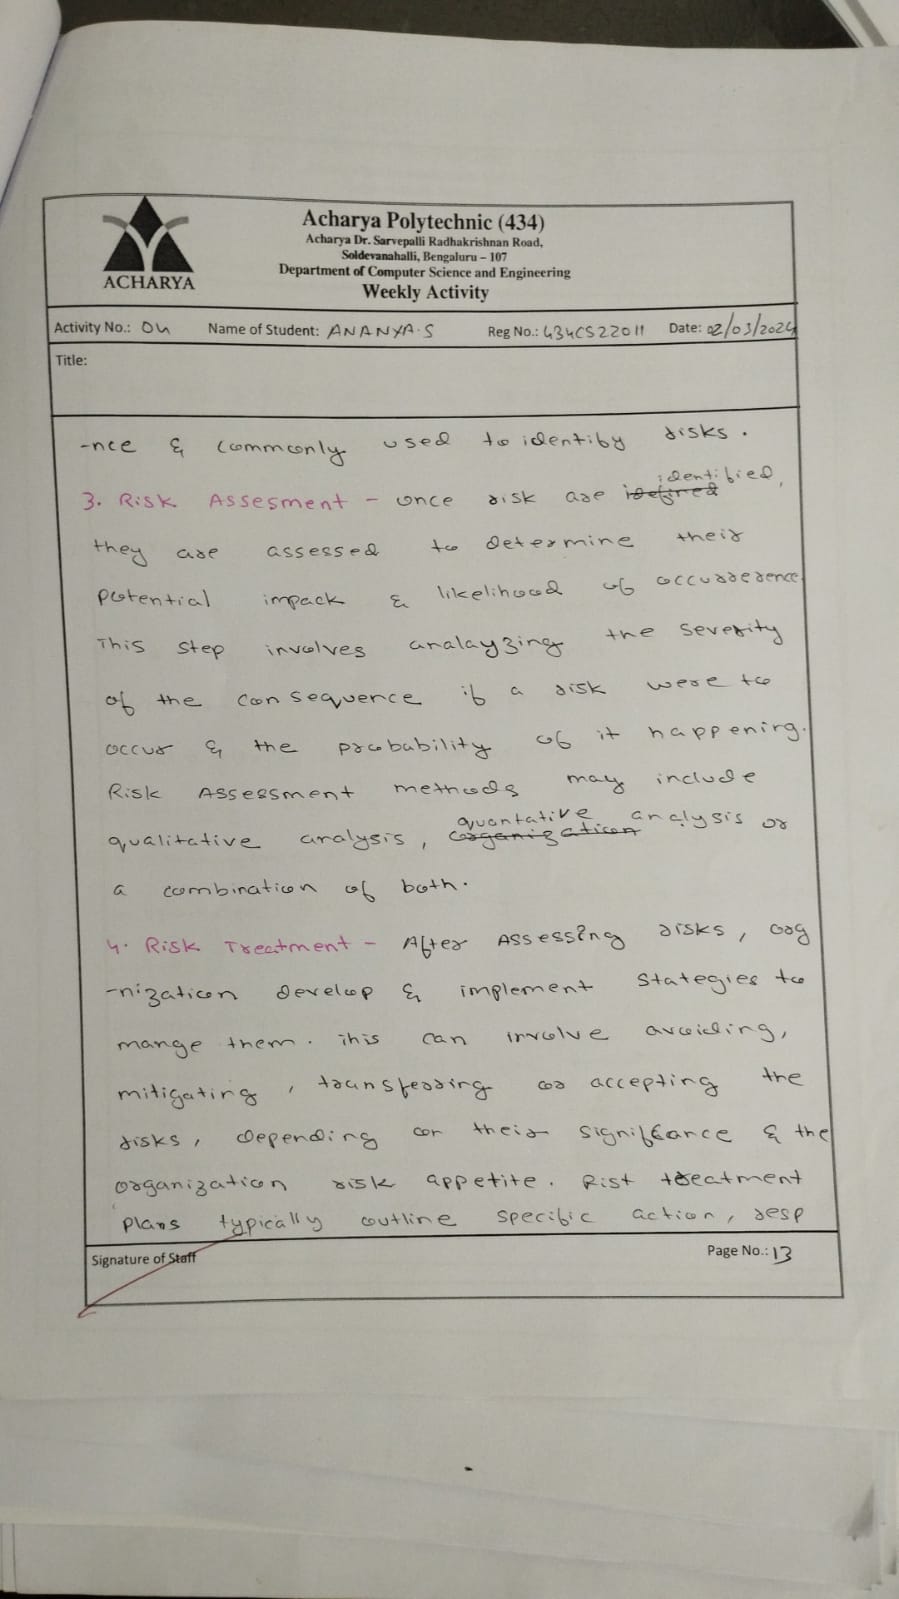 ACHARYA
Acharya Polytechnic (434)
Acharya Dr. Sarvepalli Radhakrishnan Road,
Soldevanahalli, Bengaluru – 107
Department of Computer Science and Engineering
Weekly Activity
Activity No.: 04 Name of Student: ANANYA.S Reg No.: 434CS22011 Date: 02/03/2024
Title:
-nce & commonly used to identify risks.
3. Risk Assesment - once risk are idefined identified,
they are assessed to determine their
potential impack & likelihood of occurrerence
This step involves analayzing the severity
of the consequence if a risk were to
occur & the probability of it happening.
Risk Assessment methods may include
qualitative analysis, corganization quantative analysis or
a combination of both.
4. Risk Treatment - After Assessing risks, org
-nization develop & implement stategies to
mange them. This can involve avoiding,
mitigating, transferring or accepting the
risks, depending on their signifcance & the
organization risk appetite. Rist treatment
plans typically outline specific action, resp
Signature of Staff Page No.: 13